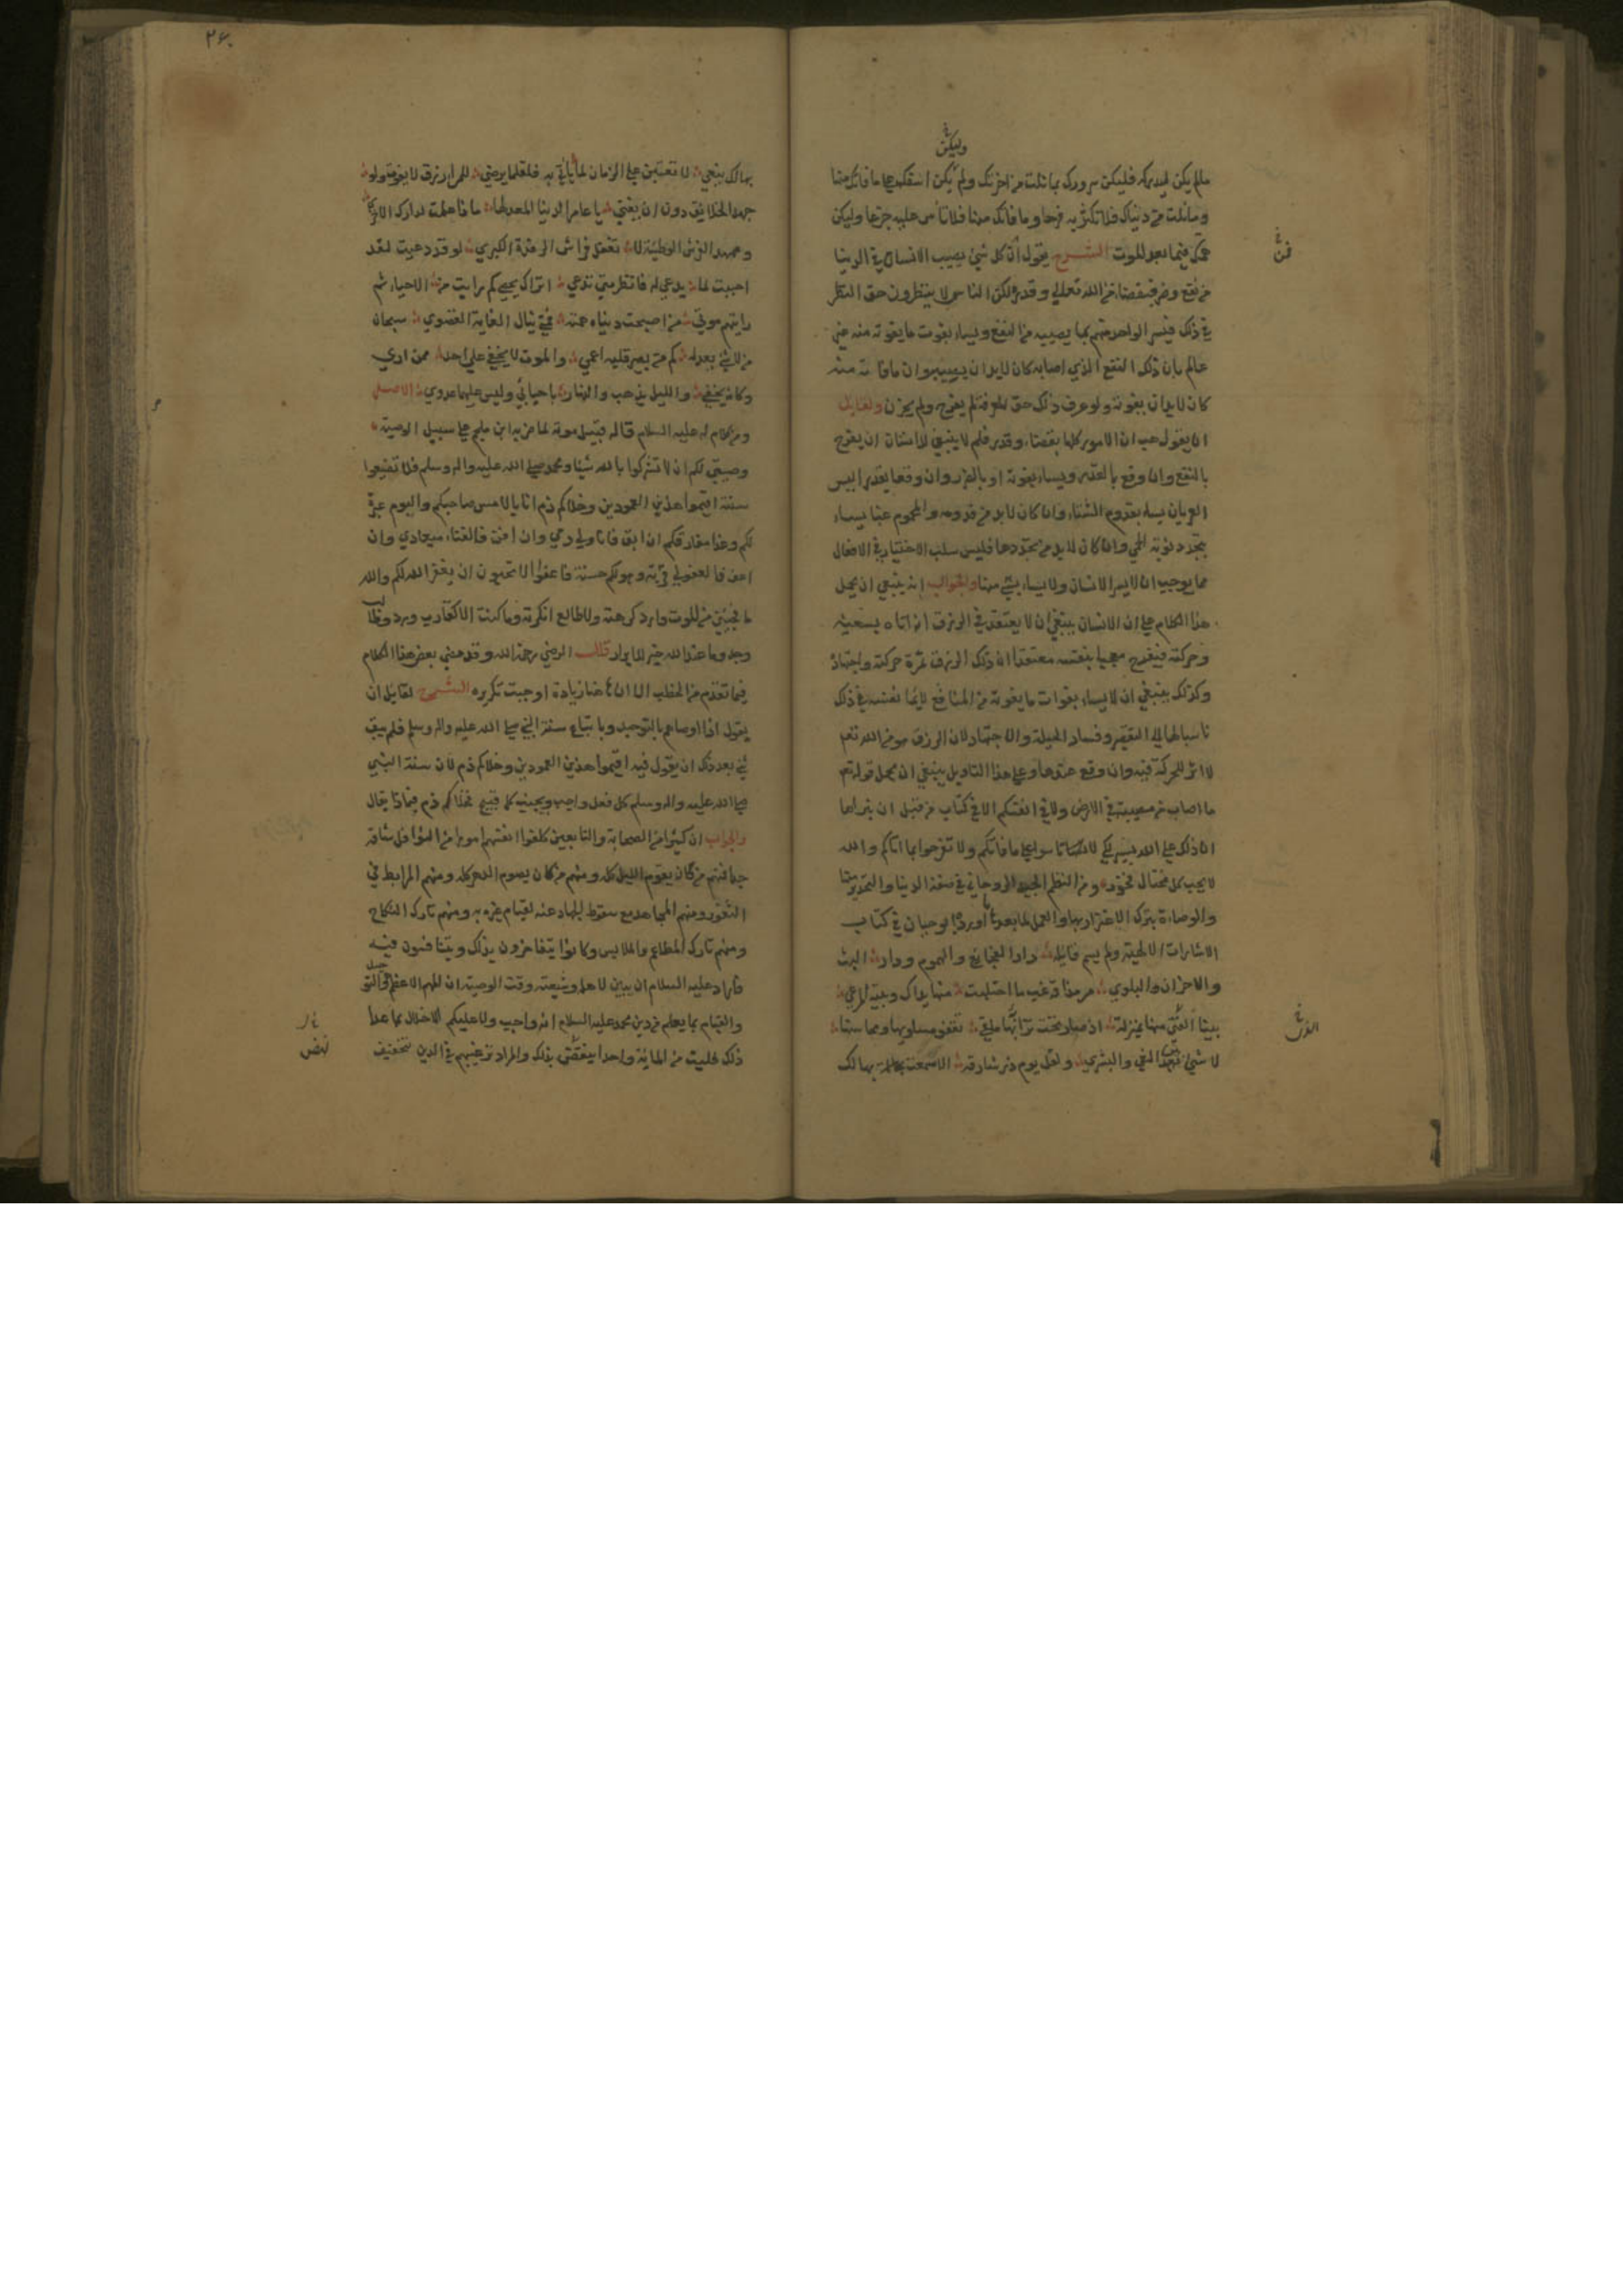 وليكن
ما لم يكن ليدركه فليكن سرورك بما نلت من اخرتك وليكن اسفك على ما فاتك منها
وما نلت من دنياك فلا تكثر به فرحا وما فاتك منها فلا تأس عليه جزعا وليكن
همك فيما بعد الموت الشرح يقول ان كل شيء يصيب الانسان في الدنيا
من نفع وضر فبقضاء من الله تعالى وقدره لكن الناس لا ينظرون حق النظر
في ذلك فيسر الواحد منهم بما يصيبه من النفع ويساء بفوت ما يفوته منه غير
عالم بان ذلك النفع الذي اصابه كان لا بد ان يصيبه وان ما فاته منه
كان لا بد ان يفوته ولو عرف ذلك حق المعرفة لم يفرح ولم يحزن ولقايل
ان يقول هب ان الامور كلها بقضاء وقدر فلم لا ينبغي للانسان ان يفرح
بالنفع وان وقع بالقدر ويساء بفوته او بالضرر وان وقعا بقدر اليس
العريان يساء بقدوم الشتاء وان كان لا بد من قدومه والمحموم غبا يساء
بتجدد نوبة الحمى وان كان لا بد من تجددها فليس سلب الاختيار في الافعال
مما يوجب ان لا يسر الانسان ولا يساء بشيء منها والجواب انه ينبغي ان يحمل
هذا الكلام على ان الانسان ينبغي ان لا يعتقد في الرزق انه اتاه بسعيه
وحركته فيفرح معجبا بنفسه معتقدا ان ذلك الرزق ثمرة حركته واجتهاده
وكذلك ينبغي ان لا يساء بفوات ما يفوته من المنافع لائما نفسه في ذلك
ناسبا لها الى التقصير وفساد الحيلة والاجتهاد لان الرزق هو من الله تعالى
لا اثر للحركة فيه وان وقع عندها وعلى هذا التاويل ينبغي ان يحمل قوله تعالى
ما اصاب من مصيبة في الارض ولا في انفسكم الا في كتاب من قبل ان نبراها
ان ذلك على الله يسير لكي لا تاسوا على ما فاتكم ولا تفرحوا بما اتاكم والله
لا يحب كل مختال فخور ومن النظم الجيد الروحاني في صفة الدنيا والتحذير منها
والوصاة بترك الاغترار بها والعمل لما بعدها ما اورده ابو حيان في كتاب
الاشارات الالهية ولم يسم قايله دار الفجائع والهموم ودار البث
والاحزان والبلوى مر مذاقة غب ما احتلبت منها يداك وبية المرعى
بينا الفتى منها بمنزلة اذ صار تحت ترابها ملقى تقفو مساويها محاسنها
لا شيء بين النعي والبشرى ولقل يوم ذر شارقه الا سمعت بهالك
فن
۲۶۰
بهالك ينعى لا تعتبن على الزمان لما ياتي به فلقلما يرضى للمرء رزق لا يفوت ولو
جهد الخلايق دون ان يفنى يا عامر الدنيا المعد لها ماذا عملت لدارك الاخرى
وممهد الفرش الوطيئة لا تغفل فراش الرقدة الكبرى لو قد دعيت لقد
اجبت لما يدعى له فانظر متى تدعى اتراك تحصي كم رايت من الاحياء ثم
رايتهم موتى من اصبحت دنياه همته فمتى ينال الغاية القصوى سبحان
من لا شيء يعدله كم من بصير قلبه اعمى والموت لا يخفى على احد ممن ارى
وكانه يخفى والليل يذهب والنهار باحبابي وليس عليهما عدوى الاصل
ومن كلام له عليه السلام قاله قبيل موته لما ضربه ابن ملجم على سبيل الوصية
وصيتي لكم ان لا تشركوا بالله شيئا ومحمد صلى الله عليه واله وسلم فلا تضيعوا
سنته اقيموا هذين العمودين وخلاكم ذم انا بالامس صاحبكم واليوم عبرة
لكم وغدا مفارقكم ان ابق فانا ولي دمي وان افن فالفناء ميعادي وان
اعف فالعفو لي قربة وهو لكم حسنة فاعفوا الا تحبون ان يغفر الله لكم والله
ما فجئني من الموت وارد كرهته ولا طالع انكرته وما كنت الا كقارب ورد وطالب
وجد وما عند الله خير للابرار قلت الرضي رحمة الله وقد مضى بعض هذا الكلام
فيما تقدم من الخطب الا ان فيه هنا زيادة اوجبت تكريره الشرح لقايل ان
يقول اذا اوصاهم بالتوحيد وباتباع سنة النبي صلى الله عليه واله وسلم فلم يبق
شيء بعد ذلك ان يقول فيه اقيموا هذين العمودين وخلاكم ذم لان سنة النبي
صلى الله عليه واله وسلم كل فعل واجب وتجنب كل قبيح فخلاكم ذم فماذا يقال
والجواب ان كثيرا من الصحابة والتابعين كلفوا انفسهم امورا من النوافل شاقة
جدا فمنهم من كان يقوم الليل كله ومنهم من كان يصوم الدهر كله ومنهم المرابط في
الثغور ومنهم المجاهد مع سقوط الجهاد عنه لقيام غيره به ومنهم تارك النكاح
ومنهم تارك المطاعم والملابس وكانوا يتفاخرون بذلك ويتنافسون فيه
فاراد عليه السلام ان يبين لاهله وشيعته وقت الوصية ان المهم الاعظم هو التوحيد
والقيام بما يعلم من دين محمد عليه السلام انه واجب ولا عليكم الاخلال بما عدا
ذلك فليت من المائة واحدا ينهض بذلك والمراد ترغيبهم في الدين بتخفيف
نهض